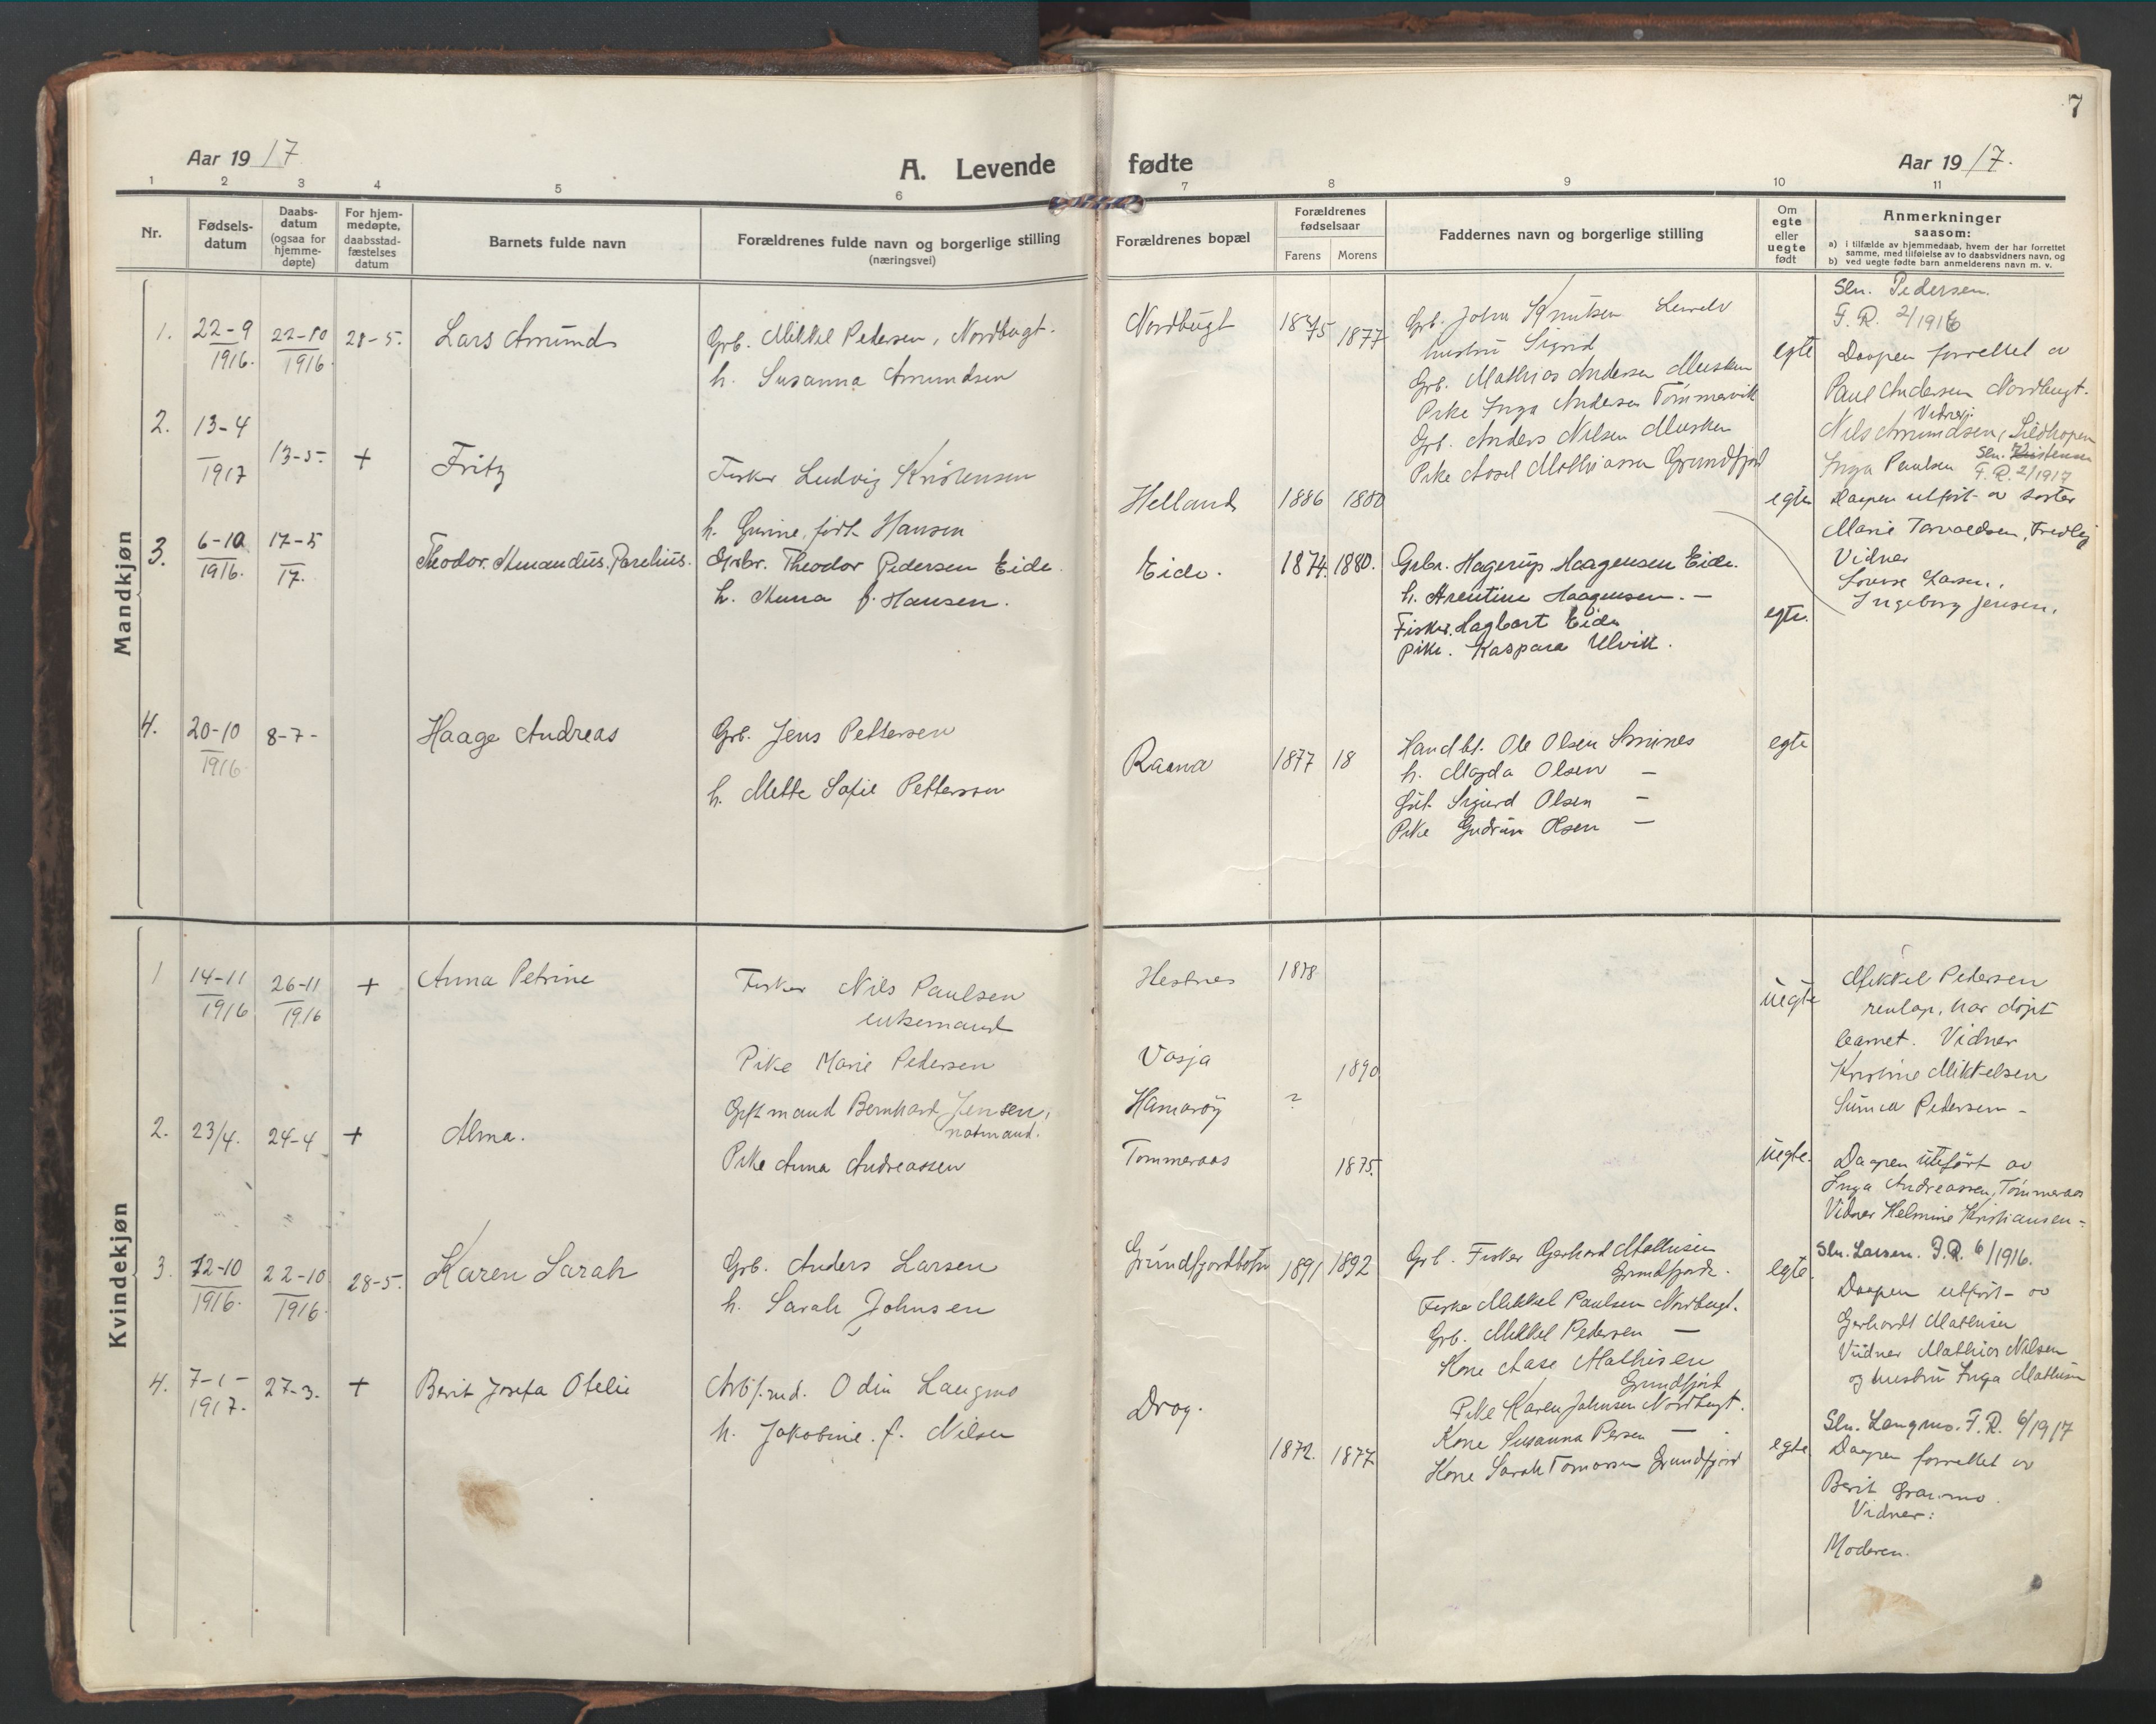 7
Aar 1917
A. Levende fødte
Aar 1917.
1 2 3 4 5 6 7 8 9 10 11
Nr.
Fødsels-
datum
Daabs-
datum
(ogsaa for
hjemme-
døpte)
For hjem-
medøpte,
daabsstad-
fæstelses
datum
Barnets fulde navn
Forældrenes fulde navn og borgerlige stilling
(næringsvei)
Forældrenes bopæl
Forældrenes
fødselsaar
Farens Morens
Faddernes navn og borgerlige stilling
Om
egte
eller
uegte
født
Anmerkninger
saasom:
a) i tilfælde av hjemmedaab, hvem der har forrettet
samme, med tilføielse av to daabsvidners navn, og
b) ved uegte fødte barn anmelderens navn m. v.
Mandkjøn
1.
22-9
1916.
22-10
1916.
28-5.
Lars Amund
Grb. Mikkel Pedersen, Nordbugt.
h. Susanna Amundsen
Nordbugt
1875
1877
Grb. John Knutsen
hustru Sigrid
Grb. Mathias Andersen Musken
Pike Inga Andersen Tømmervik
Grb. Anders Nilsen Musken
Pike Aasel Mathiassen Grundfjord
egte
Sln. Pedersen.
F. R. 2/1916
Daapen forrettet av
Paul Andersen Nordbugt.
Vidner:
Nils Amundsen, Sildhopen
Inga Paulsen
2.
13-4
1917
13-5-
+
Fritz
Fisker Ludvig Kristensen
h. Gurine, født Hansen
Helland
1886
1880
egte
Sln. Kristensen
F. R. 2/1917
Daapen utført av søster
Marie Torvaldsen, Fredly
Vidner
Lovise Larsen.
Ingeborg Jensen.
3.
6-10
1916.
17-5
17.
Theodor. Amandus. Parelius.
Grbr. Theodor Pedersen Eide.
h. Anna f. Hansen.
Eide.
1874.
1880.
Grbr. Hagerup Haagensen Eide.
h. Arentine Haagensen. —
Fisker. Hagbart Eide
pike. Kaspara Ulvik.
egte.
4.
20-10
1916
8-7-
Haage Andreas
Grb. Jens Pettersen
h. Mette Sofie Pettersen
Raana
1877
18
Handlsb. Ole Olsen
h. Magda Olsen —
Sigurd Olsen —
Pike Gudrun Olsen —
egte
Kvindekjøn
1
14-11
1916
26-11
1916
+
Anna Petrine
Fisker Nils Paulsen
enkemand
Pike Marie Pedersen
Hestnes
Vasja
1878
1890
uegte
Mikkel Pedersen
renlap, har døpt
barnet. Vidner
Kristine Mikkelsen
Pedersen -
2.
23/4.
24-4
+
Alma.
Gift mand Bernhard Jensen,
notmand.
Pike Anna Andreassen
Hamarøy
Tømmeraas
?
1875.
uegte.
Daapen uteført av
Inga Andreassen, Tømmeraas
Vidner Helmine Kristiansen -
3.
12-10
1916.
22-10
1916.
28-5.
Karen Sarah
Grb. Anders Larsen
h. Sarah Johnsen
Grundfjordbotn
1891
1892
Grb. Fisker Gerhard Mathisen
Grundfjord.
Fisker Mikkel Paulsen Nordbugt.
Grb. Mikkel Pedersen —
Kone Aase Mathisen
Grundfjord
Pike Karen Johnsen Nordbugt.
Kone Susanna Persen —
Kone Sarah Tomassen Grundfjord
egte.
Sln. Larsen. F. R. 6/1916.
Daapen utført av
Gerhardt Mathisen
Vidner Mathias Nilsen
og hustru Inga Mathisen
4.
7-1-
1917.
27-3.
+
Berit Josefa Otelie
Arb.f.md. Odin Langmo
h. Jakobine f. Nilsen
Drag.
1872.
1877.
egte.
Sln. Langmo. F. R. 6/1917
Daapen forrettet av
Berit
Vidner:
Moderen.